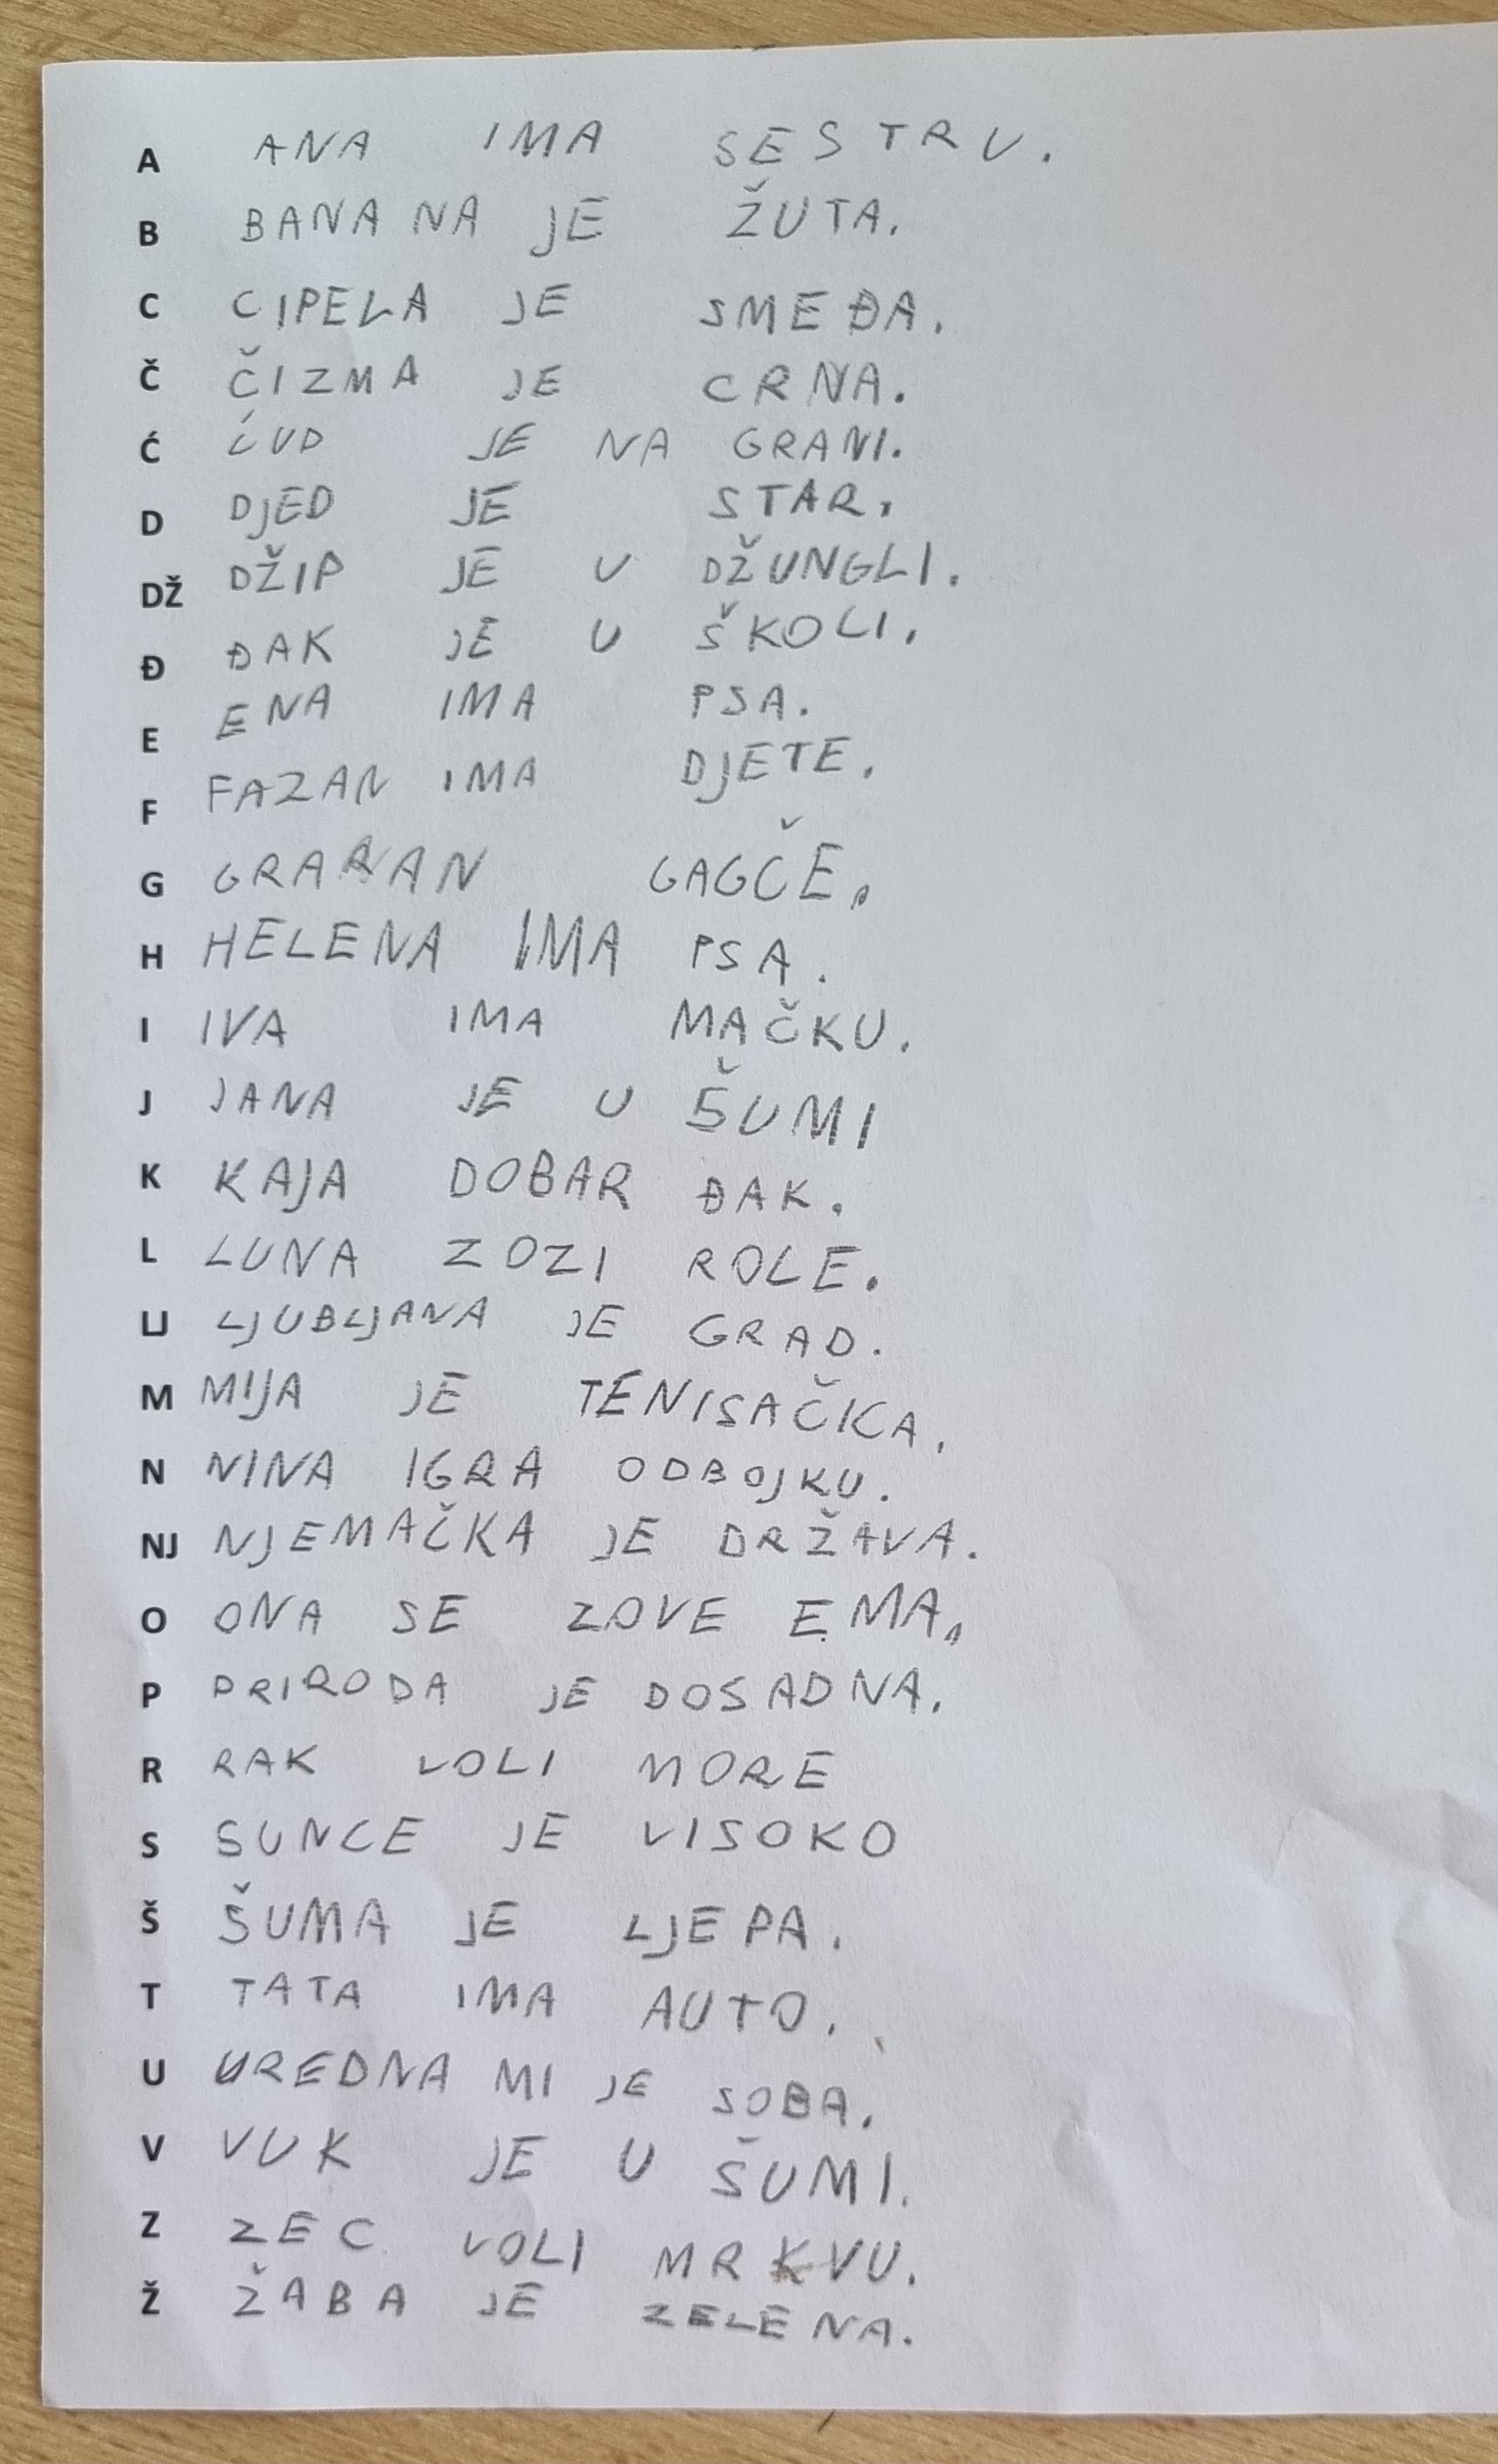 A ANA IMA SESTRU.
B BANANA JE ŽUTA.
C CIPELA JE SMEĐA.
Č ČIZMA JE CRNA.
Ć ĆUD JE NA GRANI.
D DJED JE STAR.
DŽ DŽIP JE U DŽUNGLI.
Đ ĐAK JE U ŠKOLI.
E ENA IMA PSA.
F FAZAN IMA DJETE.
G GAGČE.
H HELENA IMA PSA.
I IVA IMA MAČKU.
J JANA JE U ŠUMI
K KAJA DOBAR ĐAK.
L LUNA ZOZI ROLE.
LJ LJUBLJANA JE GRAD.
M MIJA JE TENISAČKA.
N NINA IGRA ODBOJKU.
NJ NJEMAČKA JE DRŽAVA.
O ONA SE ZOVE EMA.
P PRIRODA JE DOSADNA.
R RAK VOLI MORE
S SUNCE JE VISOKO
Š ŠUMA JE LJEPA.
T TATA IMA AUTO.
U UREDNA MI JE SOBA.
V VUK JE U ŠUMI.
Z ZEC VOLI MRKVU.
Ž ŽABA JE ZELENA.